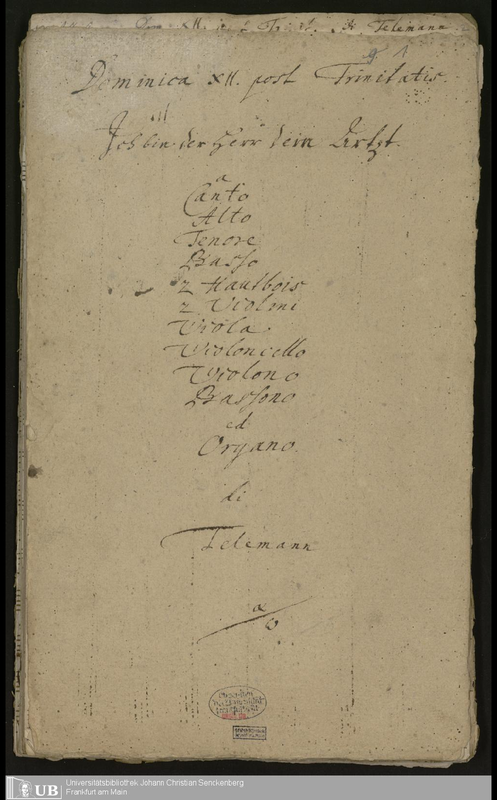 Telemann
Dominica XII. post Trinitatis
Ich bin der Herr dein Artzt.
a
Canto
Alto
Tenore
Basso
2 Hautbois
2 Violini
Viola
Violoncello
Violono
Bassono
ed
Organo.
di
Telemann
UB
Universitätsbibliothek Johann Christian Senckenberg
Frankfurt am Main